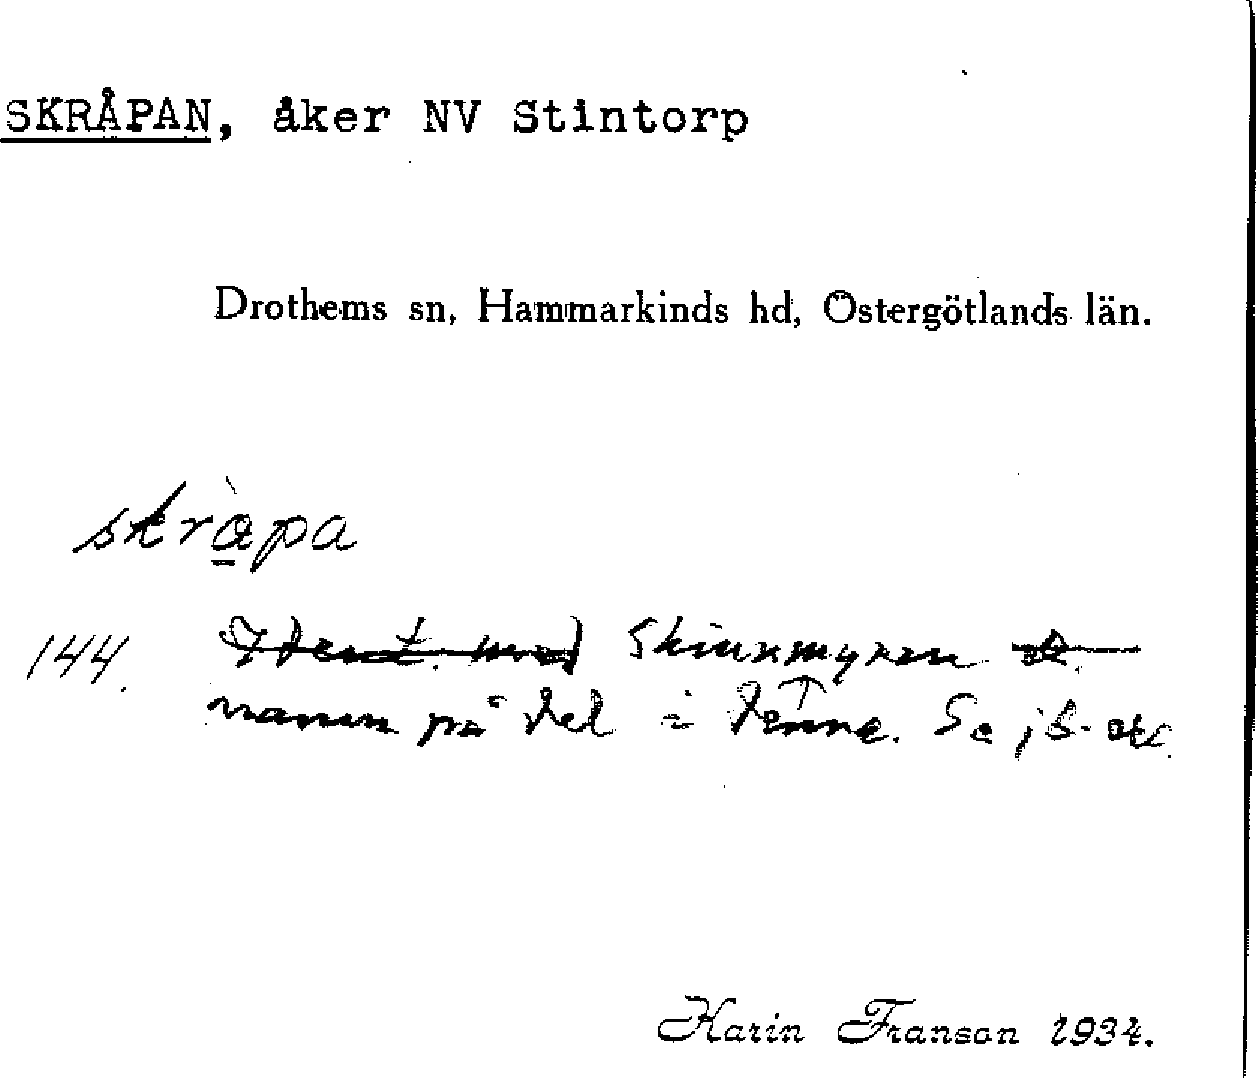 SKRÅPAN, åker NV Stintorp
Drothems sn, Hammarkinds hd, Östergötlands län.
skràpa
144. Ident. med Skinnmyren
namn på del i denne. Se jb-
Karin Franson 1934.